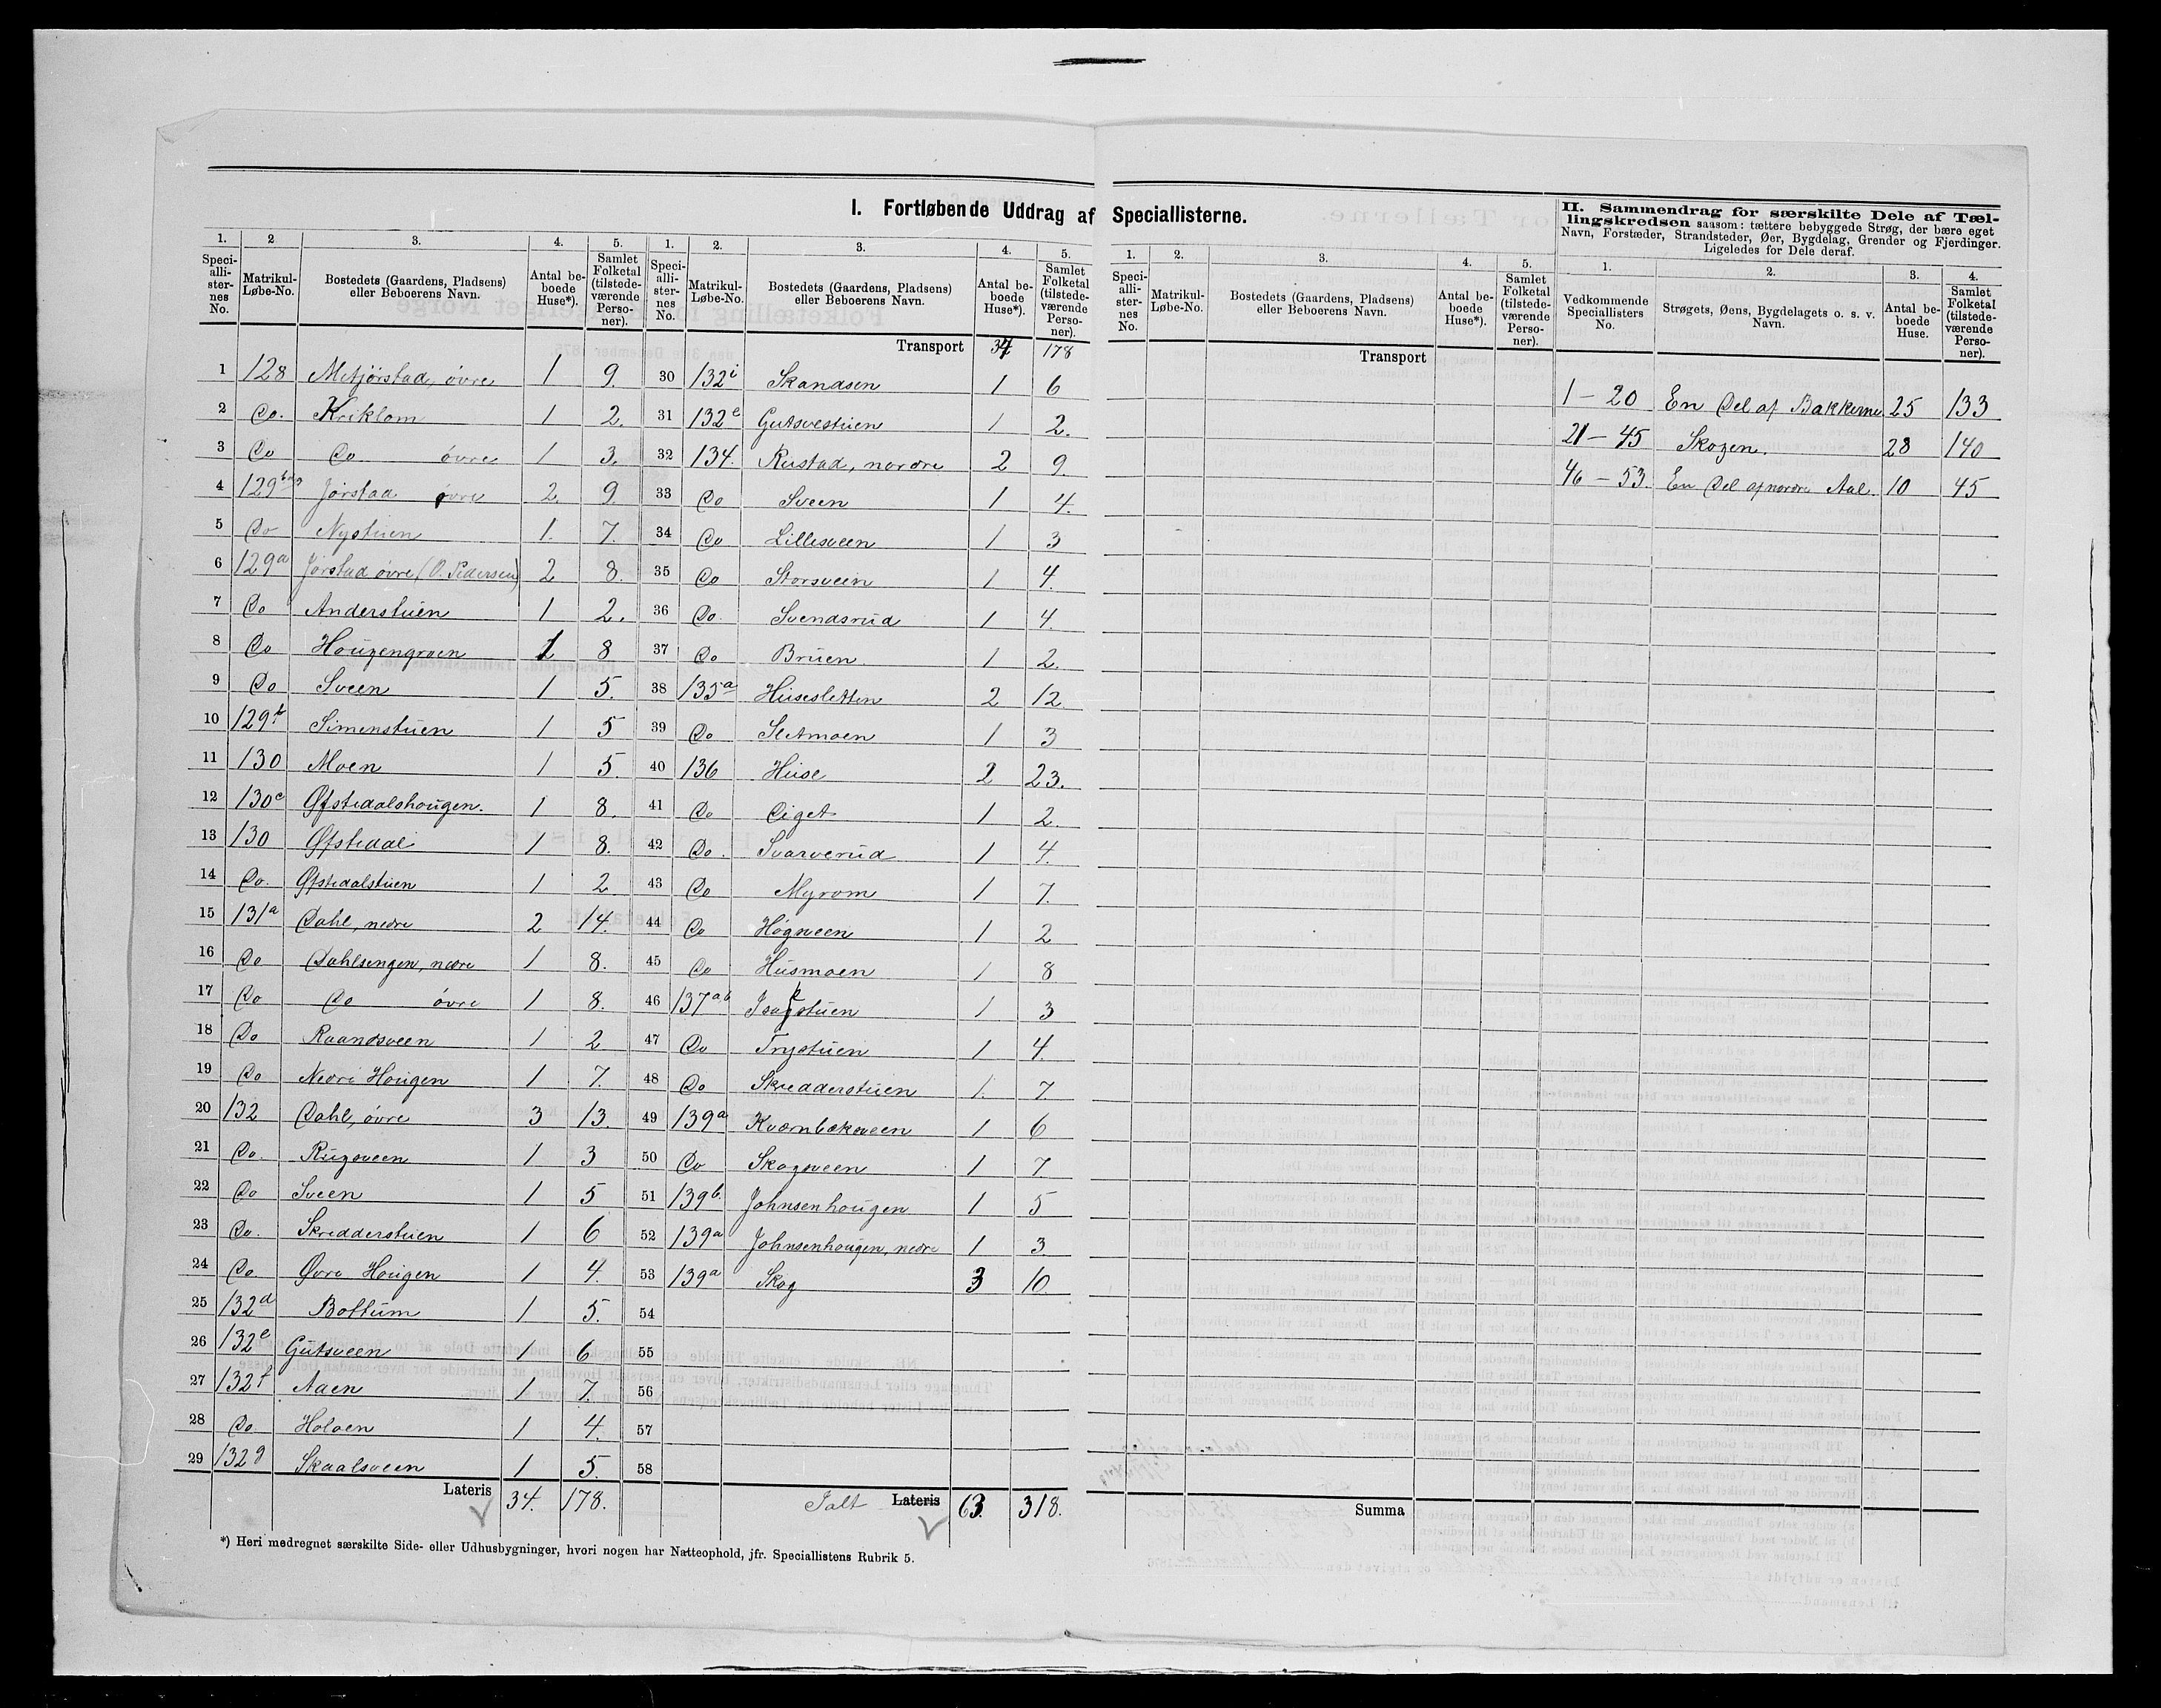 I. Fortløbende Uddrag af Speciallisterne.
1. 2 3. 4. 5.
Speciallisternes No. Matrikul-Løbe-No. Bostedets (Gaardens, Pladsens) eller Beboerens Navn. Antal beboede Huse*). Samlet Folketal (tilstedeværende Personer).
1 128 Metjørstad, övre 1 9.
2 Do. Kriklom 1 2.
3 Do Do övre 1 3.
4 129 Jørstad øvre 2. 9.
5 Do Nystuen 1. 7.
6 129a Jørstad övre (O. Pedersen) 2 8.
7 Do Anderstuen 1 2.
8 Do Hougengroen 1 8
9 Do Sveen 1 5.
10 129b Simenstuen 1 5
11 130 Moen 1 5.
12 130c Øfstedalshougen. 1 8.
13 130 Øfstedal 1 8.
14 Do. Øfstedalstuen 1 2
15 131a Dahl, nedre 2 14.
16 Do Dahlsengen, nedre 1 8.
17 Do Do övre 1 8.
18 Do Raandsveen 1 2
19 Do Nedre Hougen 1 7.
20 132 Dahl, övre 3 13.
21 Do. Rugsveen 1 3
22 Do Sveen 1 5
23 Do. Skredderstuen 1 6
24 Do. Øvre Hougen 1 4.
25 132d Bottum 1 5.
26 132e Gutsveen 1 6
27 132f Aaen 1 7.
28 Do. Holoen 1 4.
29 132g Skaalsveen 1 5.
Lateris 34. 178.
*) Heri medregnet særskilte Side- eller Udhusbygninger, hvori nogen har Natteophold, jfr. Speciallistens Rubrik 5.
1. 2. 3. 4. 5.
Speciallisternes No. Matrikul-Løbe-No. Bostedets (Gaardens, Pladsens) eller Beboerens Navn. Antal beboede Huse*). Samlet Folketal (tilstedeværende Personer).
Transport 34 178
30 132i Skandsen 1 6
31 132e Gutsvestuen 1 2.
32 134. Rustad, nordre 2 9.
33 Do Sveen 1 4.
34 Do Lillesveen 1 3
35 Do Storsveen 1 4.
36 Do. Svendsrud 1 4.
37 Do Bruen 1 2.
38 135a Husesletten 2 12.
39 Do Sletmoen 1 3
40 136 Huse 2 23.
41 Do Diget 1 2.
42 Do. Svarverud 1 4.
43 Do Myrom 1 7.
44 Do Högsveen 1 2
45 Do Husmoen 1 8
46 137a.b Isakstuen 1 3
47 Do Trystuen 1 4.
48 Do Skredderstuen 1. 7
49 139a Kvernbeksveen 1 6
50 Do Skogsveen 1 7.
51 139b. Johnsenhougen 1 5
52 139a Johnsenhougen, nedre 1 3.
53 139a Skog 3 10.
54
55
56
57
58
Ialt Lateris 63. 318.
1. 2. 3. 4. 5.
Speciallisternes No. Matrikul-Løbe-No. Bostedets (Gaardens, Pladsens) eller Beboerens Navn. Antal beboede Huse*). Samlet Folketal (tilstedeværende Personer).
Transport
Summa
II. Sammendrag for særskilte Dele af Tællingskredsen saasom: tættere bebyggede Strøg, der bære eget
Navn, Forstæder, Strandsteder, Øer, Bygdelag, Grender og Fjerdinger.
Ligeledes for Dele deraf.
1. 2. 3. 4.
Vedkommende Speciallisters No. Strøgets, Øens, Bygdelagets o. s. v. Navn. Antal beboede Huse. Samlet Folketal (tilstedeværende Personer).
1 – 20 En Del af Bakkerne 25 133
21 – 45 Skogen. 28 140
46 – 53. En Del af nordre Aal. 10 45